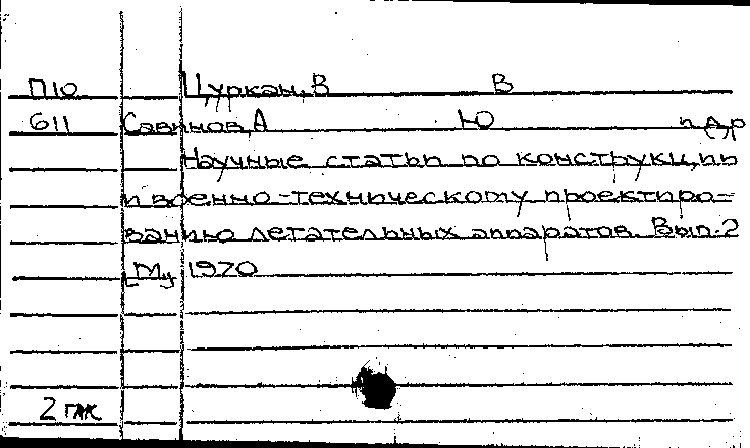 П10 Цуркан, В В
611 Савинов, А Ю и др
Научные статьи по конструкции
и военно-техническому проектиро-
ванию летательных аппаратов. Вып. 2
[М.] 1970
2 гак